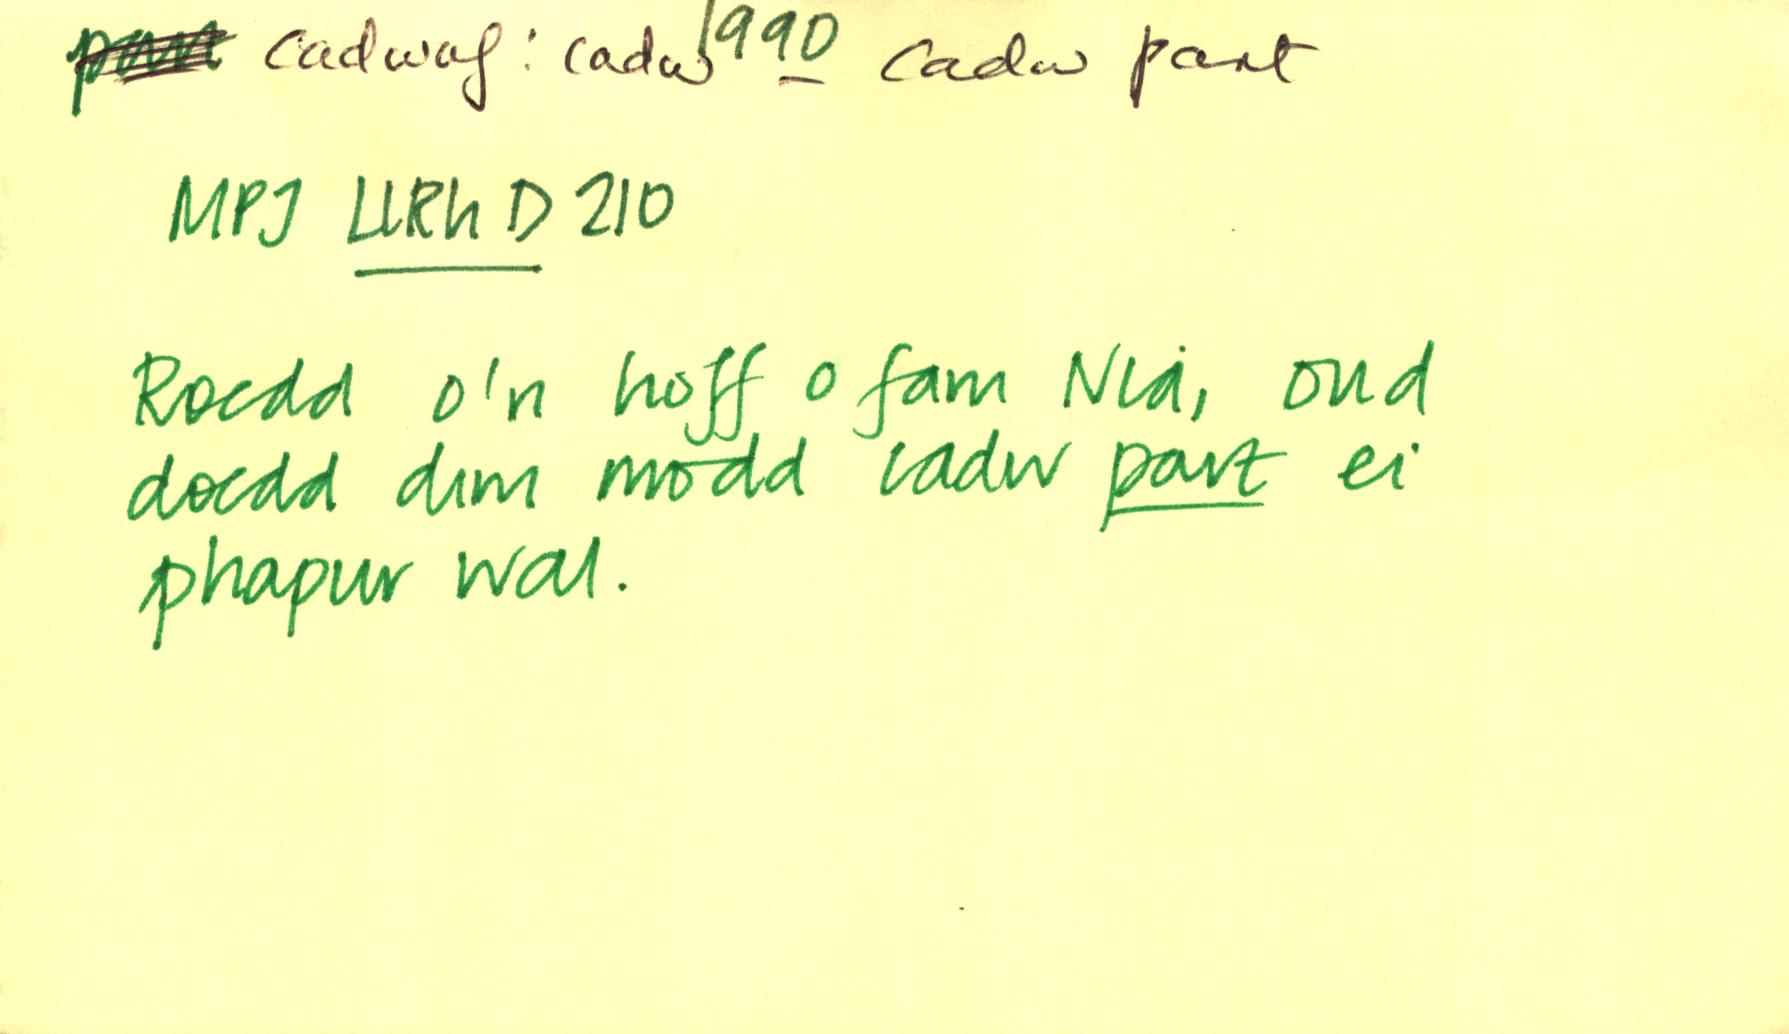 cadwaf: cadw 1990 cadw part
MPJ LlRh D 210
Roedd o'n hoff o fam Nia, ond
doedd dim modd cadw part ei
phapur wal.